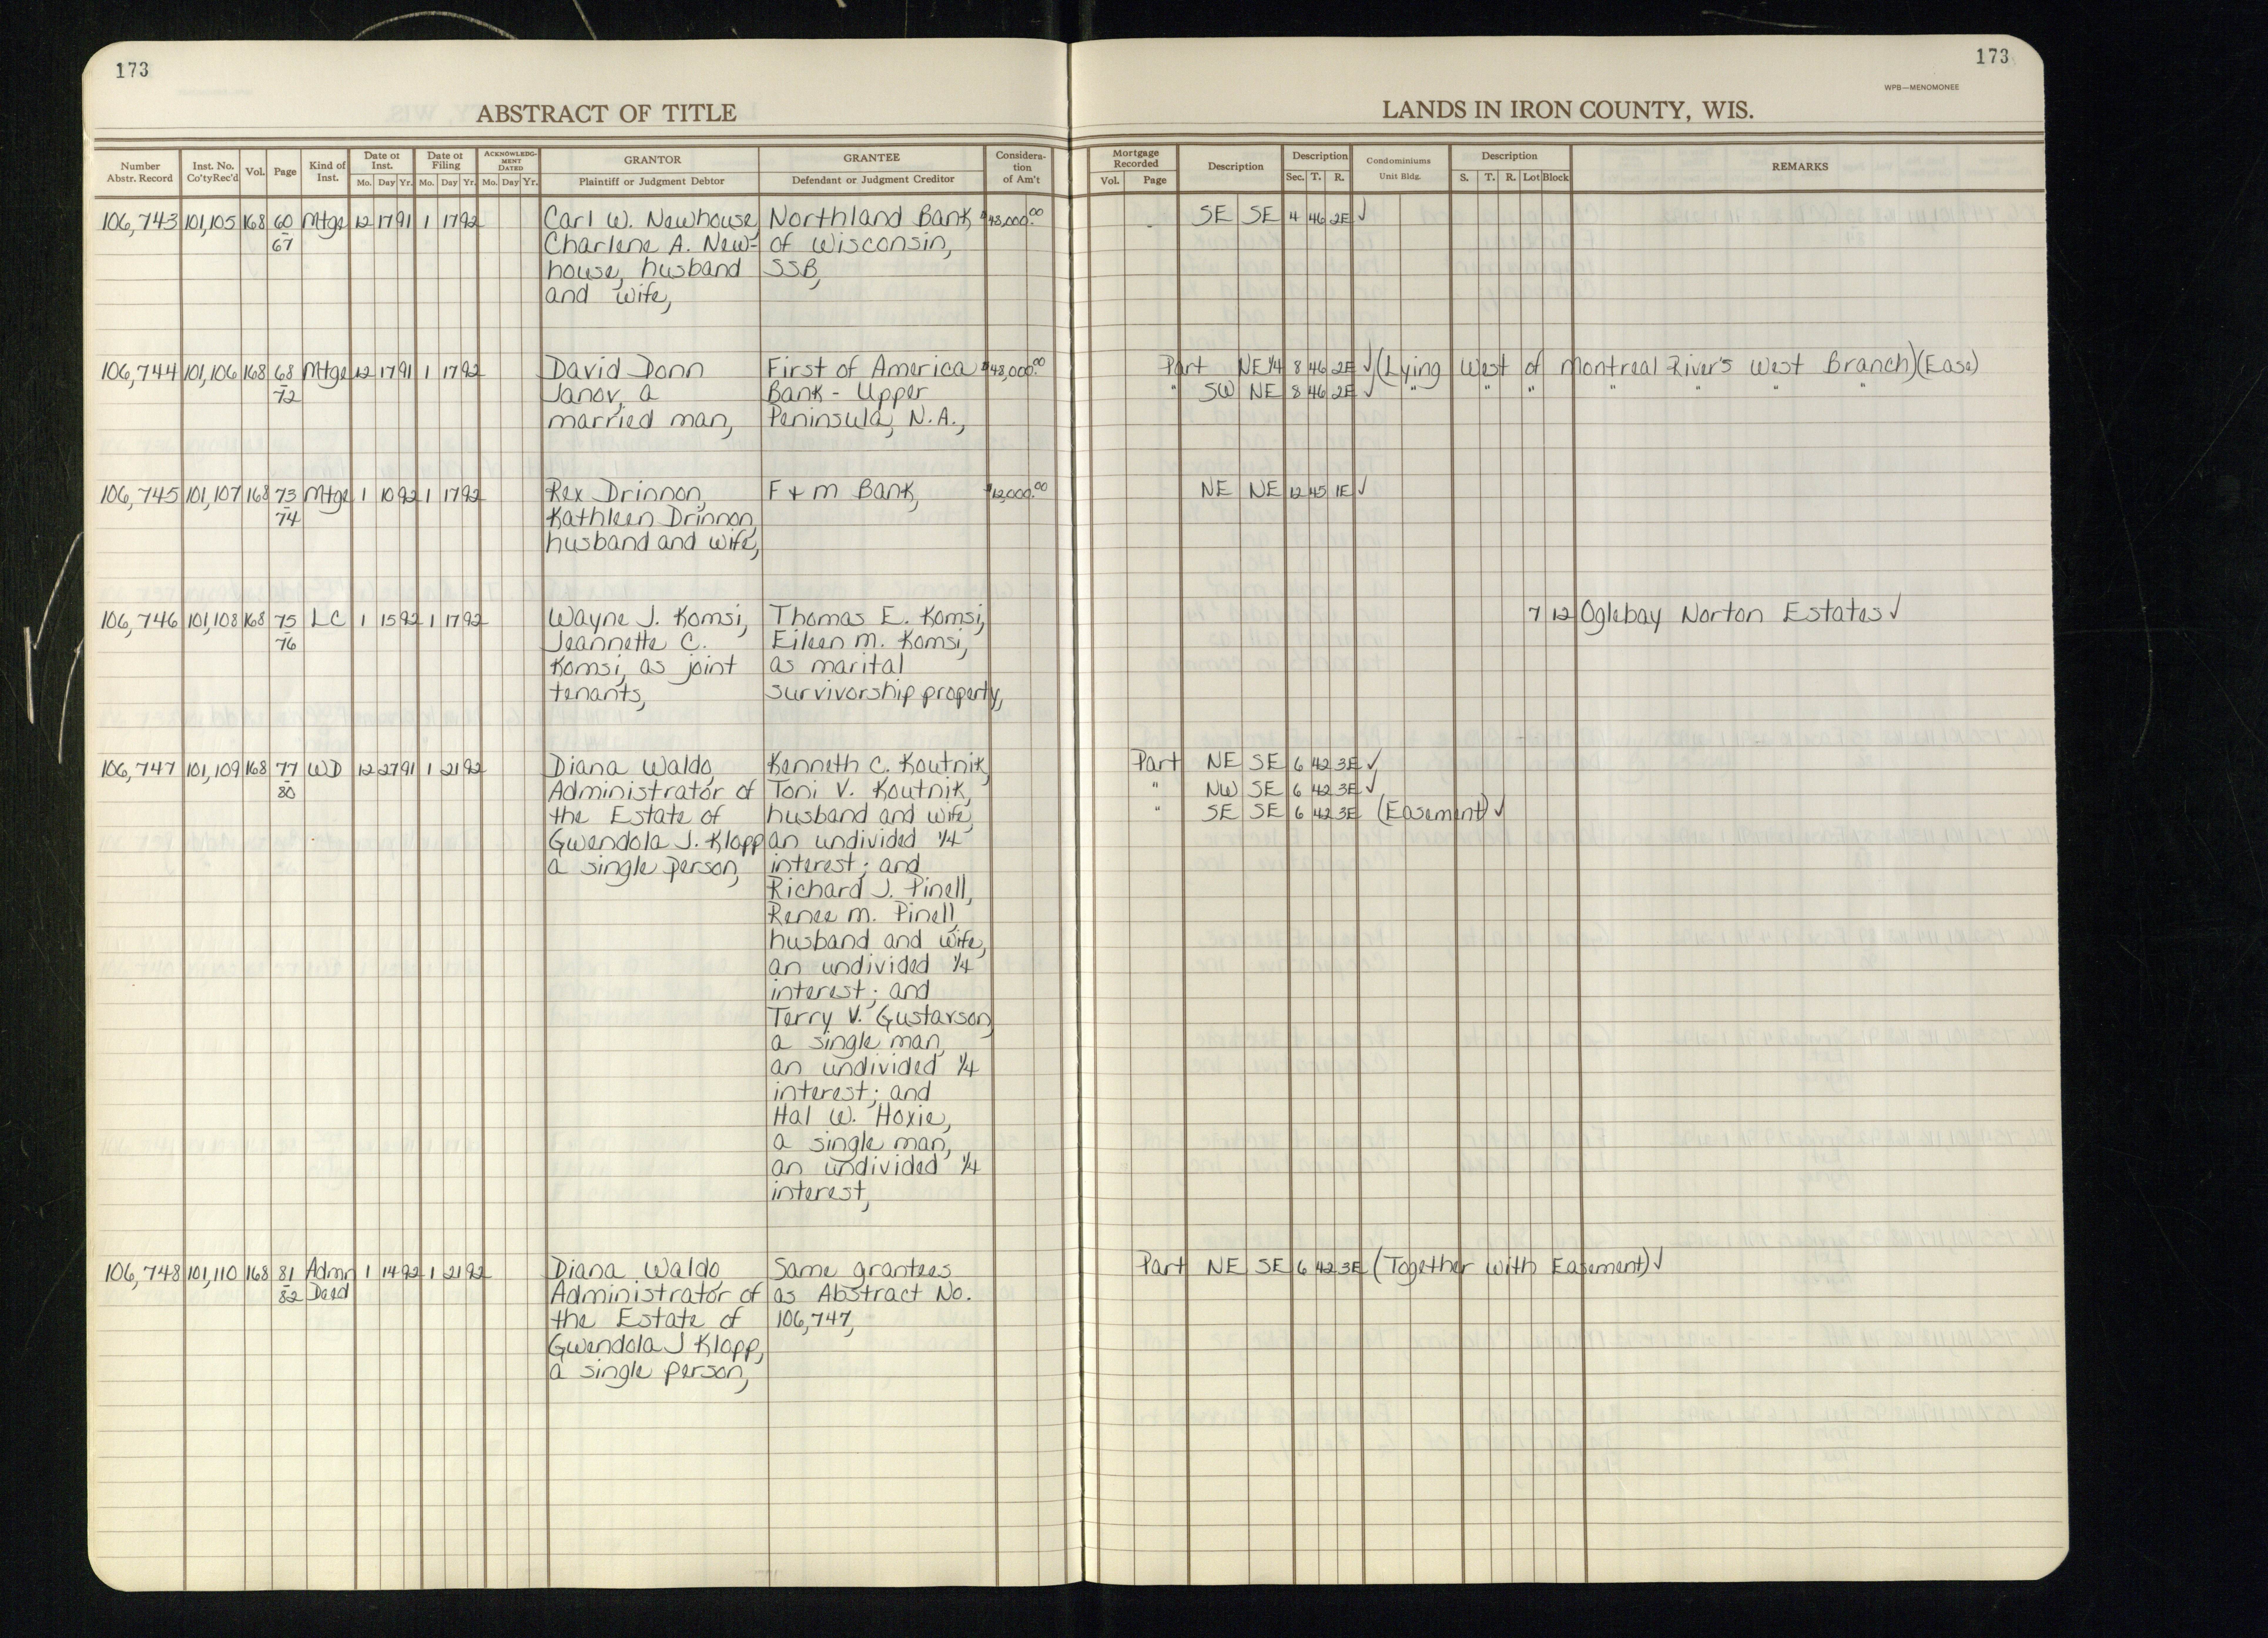 173
173
WPB—MENOMONEE
ABSTRACT OF TITLE
LANDS IN IRON COUNTY, WIS.
Number Abstr. Record
Inst. No. Co'tyRec'd
Vol.
Page
Kind of Inst.
Date of Inst. Mo. Day Yr.
Date of Filing Mo. Day Yr.
ACKNOWLEDGMENT DATED Mo. Day Yr.
GRANTOR Plaintiff or Judgment Debtor
GRANTEE Defendant or Judgment Creditor
Consideration of Am't
Mortgage Recorded Vol. Page
Description
Description Sec. T. R.
Condominiums Unit Bldg.
Description S. T. R. Lot Block
REMARKS
106,743 101,105 168 60 Mtge 12 17 91 1 17 92 Carl W. Newhouse, Northland Bank $48,000.00 SE SE 4 46 2E ✓
67 Charlene A. New- of Wisconsin,
house, husband SSB,
and wife,
106,744 101,106 168 68 Mtge 12 17 91 1 17 92 David Donn First of America $48,000.00 Part NE 1/4 8 46 2E ✓ (Lying West of Montreal River's West Branch)(Ease)
72 Janov, a Bank - Upper " SW NE 8 46 2E ✓ " " " " " "
married man, Peninsula, N.A.,
106,745 101,107 168 73 Mtge 1 10 92 1 17 92 Rex Drinnon, F + M Bank, $12,000.00 NE NE 12 45 1E ✓
74 Kathleen Drinnon,
husband and wife,
106,746 101,108 168 75 LC 1 15 92 1 17 92 Wayne J. Komsi, Thomas E. Komsi, 7 12 Oglebay Norton Estates ✓
76 Jeannette C. Eileen M. Komsi,
Komsi, as joint as marital
tenants, survivorship property,
106,747 101,109 168 77 WD 12 27 91 1 21 92 Diana Waldo, Kenneth C. Koutnik, Part NE SE 6 42 3E ✓
80 Administrator of Toni V. Koutnik, " NW SE 6 42 3E ✓
the Estate of husband and wife, " SE SE 6 42 3E (Easement) ✓
Gwendola J. Klopp, an undivided 1/4
a single person, interest; and
Richard J. Pinell,
Renee M. Pinell,
husband and wife,
an undivided 1/4
interest; and
Terry V. Gustavson,
a single man,
an undivided 1/4
interest; and
Hal W. Hoxie,
a single man,
an undivided 1/4
interest,
106,748 101,110 168 81 Admr 1 14 92 1 21 92 Diana Waldo, Same grantees Part NE SE 6 42 3E (Together with Easement) ✓
82 Deed Administrator of as Abstract No.
the Estate of 106,747,
Gwendola J Klopp,
a single person,